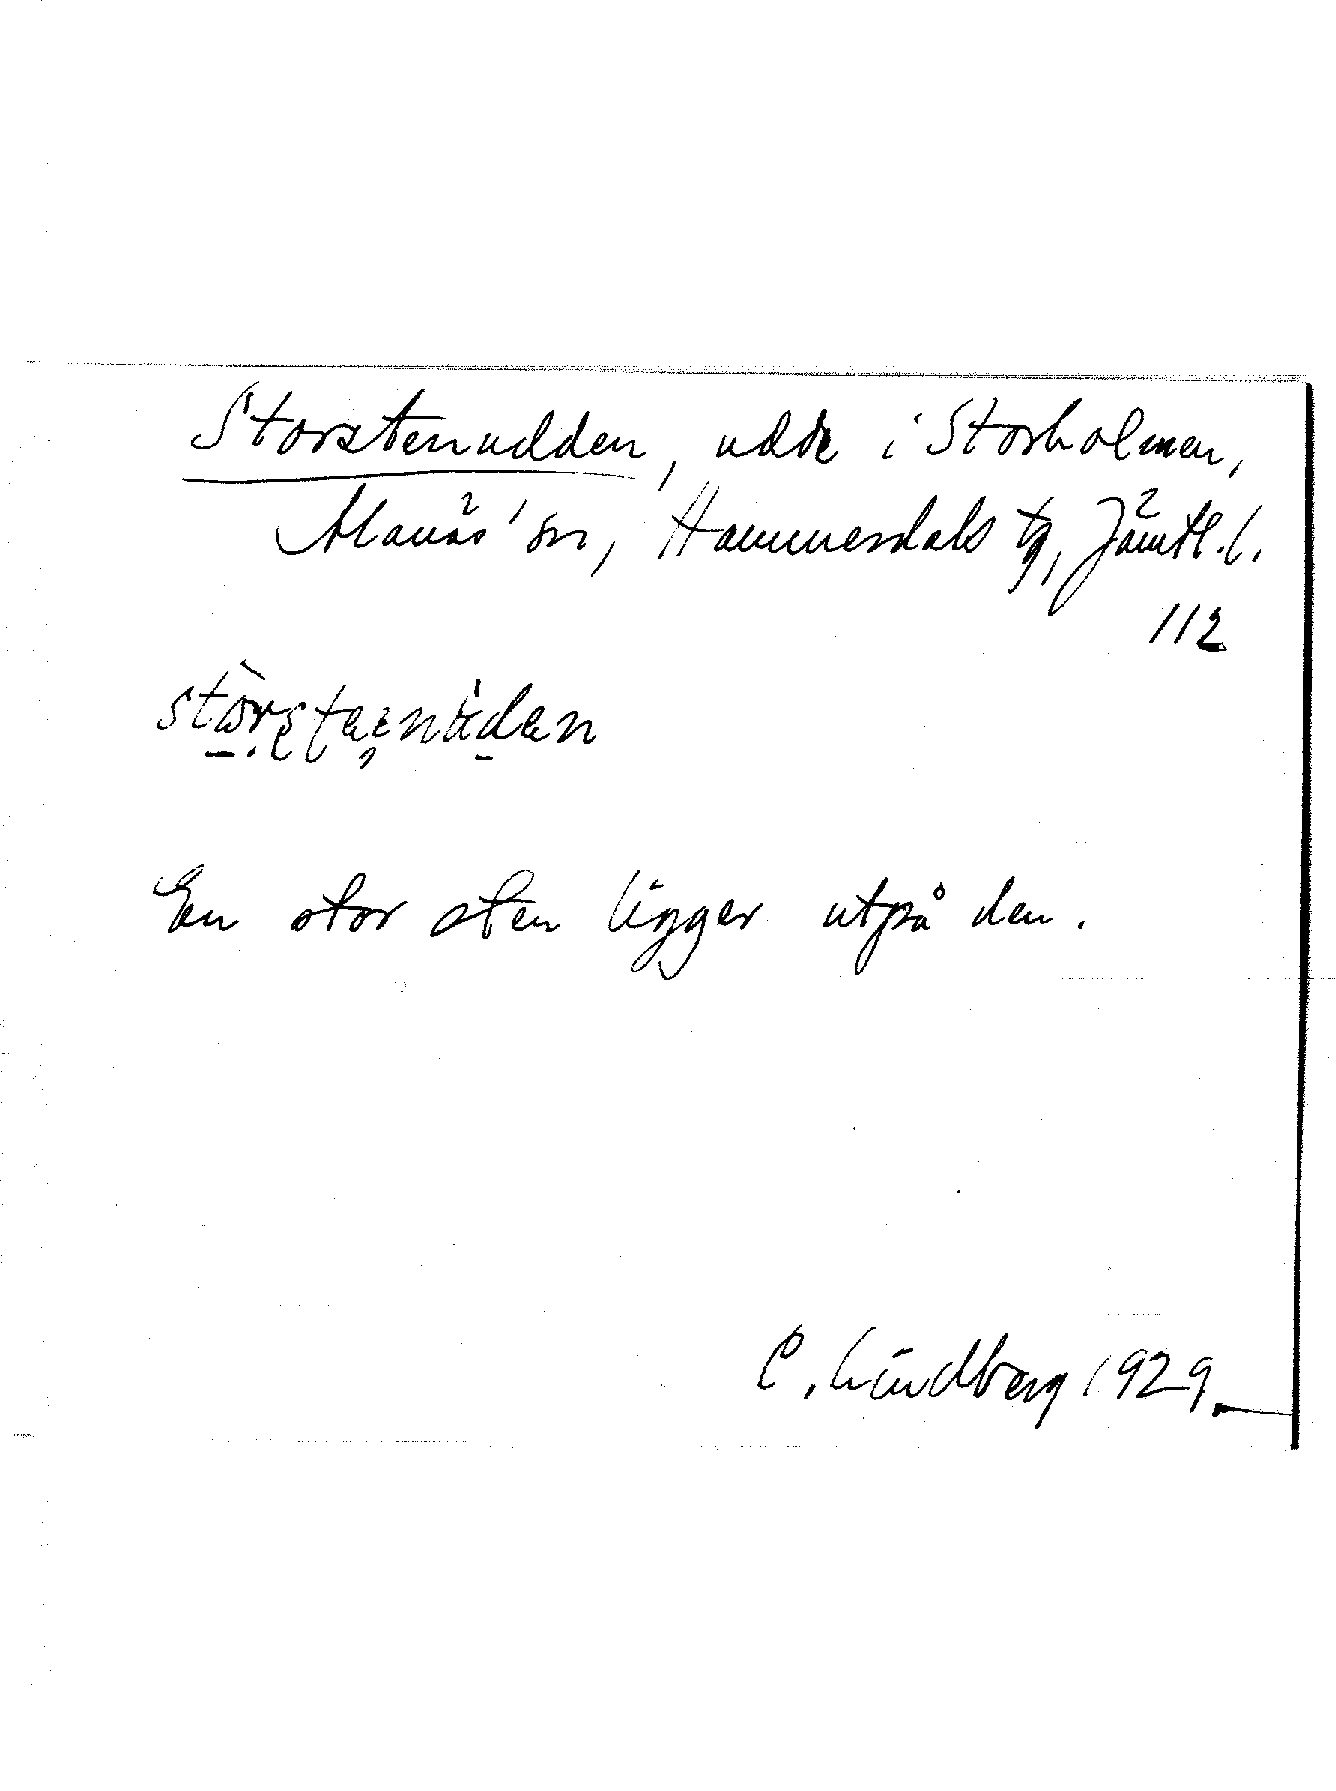 Storstenudden, udde i Storholmen,
Alanäs' sn, Hammerdals tg, Jämtl. l.
112
En stor sten ligger utpå den.
C. Lindberg 1929.